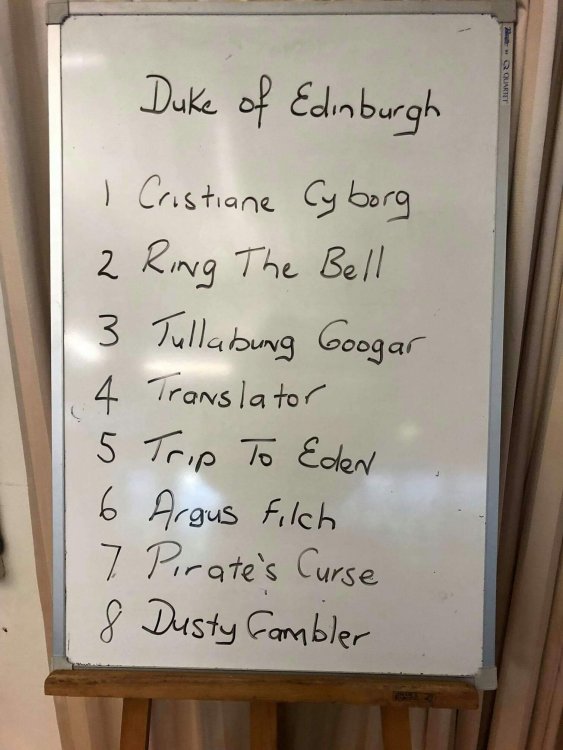 Duke of Edinburgh
1 Cristiane Cyborg
2 Ring The Bell
3 Tullabung Googar
4 Translator
5 Trip To Eden
6 Argus Filch
7 Pirate's Curse
8 Dusty Gambler
QUARTET